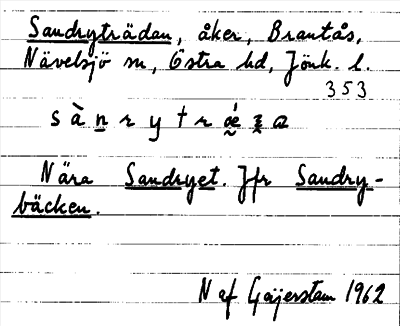 Sandryträdan, åker, Brantås,
Nävelsjö sn, Östra hd, Jönk. l.
353
Nära Sandryet. Jfr Sandry-
bäcken.
N af Geijerstam 1962